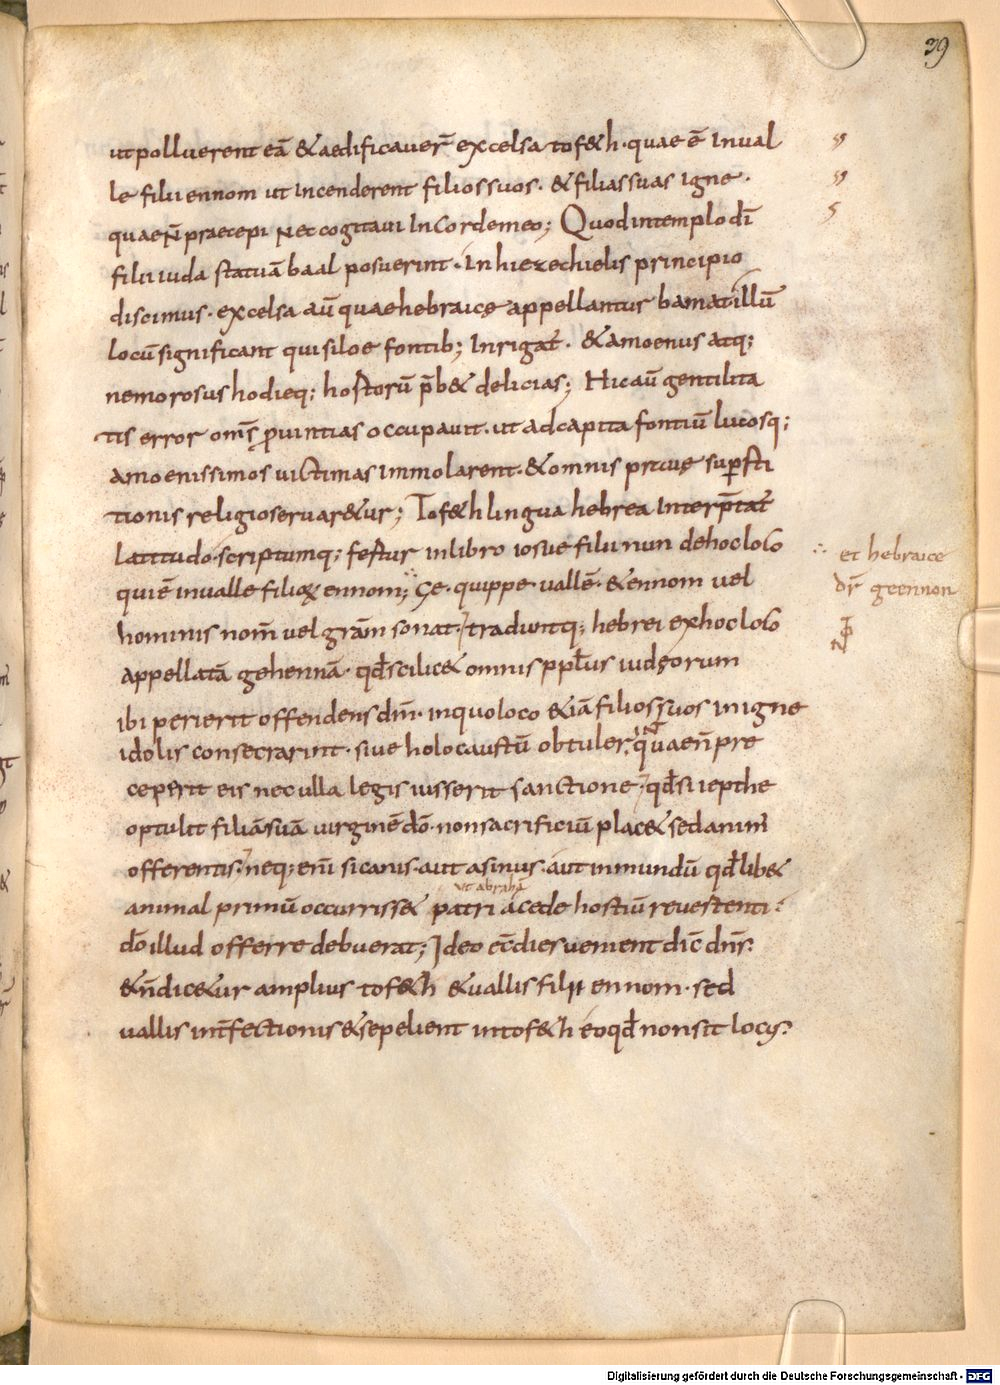 39
ut polluerent eā & aedificauer̄ excelsa tof&h · quae ē In ual
le filii ennom ut Incenderent filios suos · & filias suas Igne ·
quae n̄ praecepi Nec cogitaui In Corde meo; Quod in templo dī
filii iuda statuā baal posuerint · In hiezechielis principio
discimus · excelsa aū quae hebraicę appellantur bamat illū
locū significant qui siloe fontib; Inrigat̄ · & amoenus atq;
nemorosus hodieq; hostorū p̄b& delicias; Hic aū gentilita
tis error om̄s ꝓuintias occupauit · ut ad capita fontiū lucosq;
amoenissimos uictimas Immolarent · & omnis prauę suꝑsti
tionis religio seruar&ur; Tof&h lingua hebrea Interp̄tat̄
latitudo · scriptumq; fertur in libro iosue filii nun de hoc loco
qui ē in ualle filioꝝ ennom; ∴ Ge · quippe uallē · & ennom uel
∴ et hebraice
dr̄ geennon
hominis nom̄ uel gr̄am sonat · traduntq; hebrei ex hoc loco
appellatā gehennā · qđ scilic& omnis ppl̄us iudęorum
ibi perierit offendens dm̄ · in quo loco &iā filios suos in igne
idolis consecrarint · siue holocaustū obtuler̄, quae n̄ pre
ceperit eis nec ulla legis iusserit sanctione · qđ si iepthe
optulit filiā suā uirginē dō · non sacrificiū plac& sed anim̄
offerentis · neq; eni͞ si canis · aut asinus · aut inmundū qđlib&
ut abrahā
animal primū occurriss& patri a cede hostiū reuertenti ·
dō illud offerre debuerat; Ideo ecc̄ dies uenient dic̄ dn̄s ·
& n̄ dic&ur amplius tof&h & uallis filii ennom · sed
uallis int̄fectionis & sepelient in tof&h eo qđ non sit locus ·
Digitalisierung gefördert durch die Deutsche Forschungsgemeinschaft - DFG